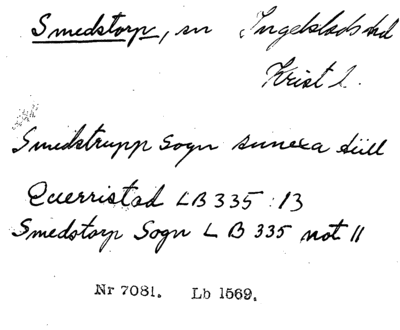 Smedstorp, sn Ingelstads hd
Krist l.
Smidstrupp Sogn annexa till
Querristad LB 335 : 13
Smedstorp Sogn LB 335 not 11
Nr 7081. Lb 1569.